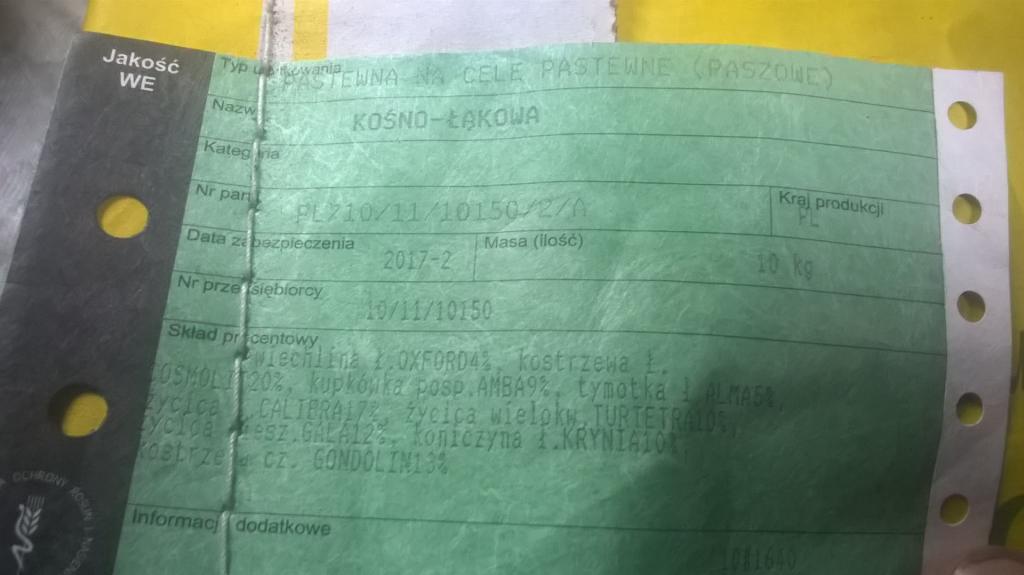 Jakość
WE
Typ
PASTEWNA NA CELE PASTEWNE (PASZOWE)
KOŚNO-ŁĄKOWA
Nr
PL710/11/10150/2/A
Kraj produkcji
PL
Data zabezpieczenia
2017-2
Masa (ilość)
10 kg
Nr
10/11/10150
Skład procentowy
wiechlina Ł.OXFORD4%, kostrzewa Ł.
20%, kupkówka posp.AMBA9%, tymotka Ł.ALMA5%,
życica .CALIBRA17%, życica wielokw.TURTETRA10%,
życica GALA12%, koniczyna Ł.KRYNIA10%,
cz. GONDOLIN13%
dodatkowe
1081640
OCHRONY ROŚLIN I